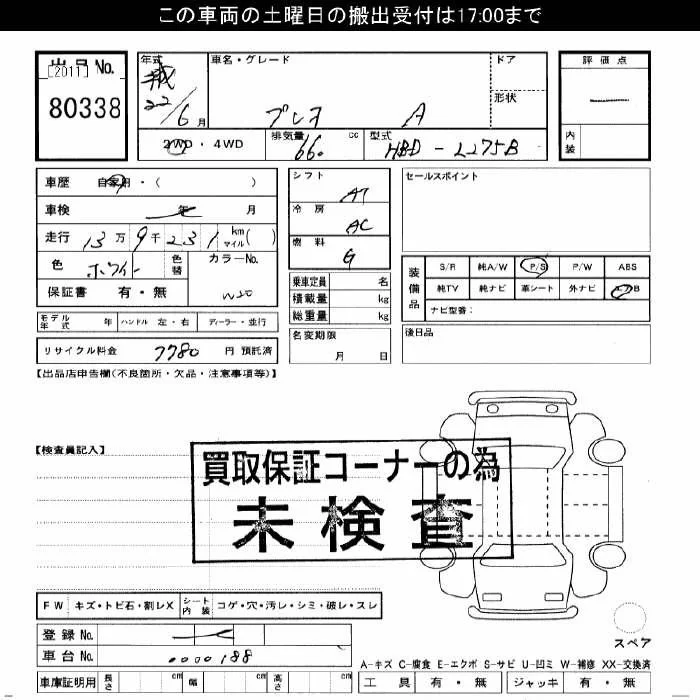 この車両の土曜日の搬出受付は17:00まで
出品No.
[2011]
80338
年式
22/6月
車名・グレード
プレオ A
ドア
形状
2WD・4WD
排気量 660 cc
型式 HBD-L275B
評価点
内装
車歴 自家用・( )
車検 年 月
走行 13万9千231 km マイル( )
色 ホワイト
色替
カラーNo. W20
保証書 有・無
モデル年式 年 ハンドル 左・右 ディーラー・並行
リサイクル料金 7780 円 預託済
シフト AT
冷房 AC
燃料 G
乗車定員 名
積載量 kg
総重量 kg
名変期限
月 日
セールスポイント
装備品
S/R 純A/W P/S P/W ABS
純TV 純ナビ 革シート 外ナビ エアB
ナビ型番:
後日品
【出品店申告欄(不良箇所・欠品・注意事項等)】
【検査員記入】
買取保証コーナーの為
未検査
FW キズ・トビ石・割レX シート内装 コゲ・穴・汚レ・シミ・破レ・スレ
登録No.
車台No. 0000188
車庫証明用 長さ cm 幅 cm 高さ cm
スペア
A-キズ C-腐食 E-エクボ S-サビ U-凹ミ W-補修 XX-交換済
工具 有・無 ジャッキ 有・無